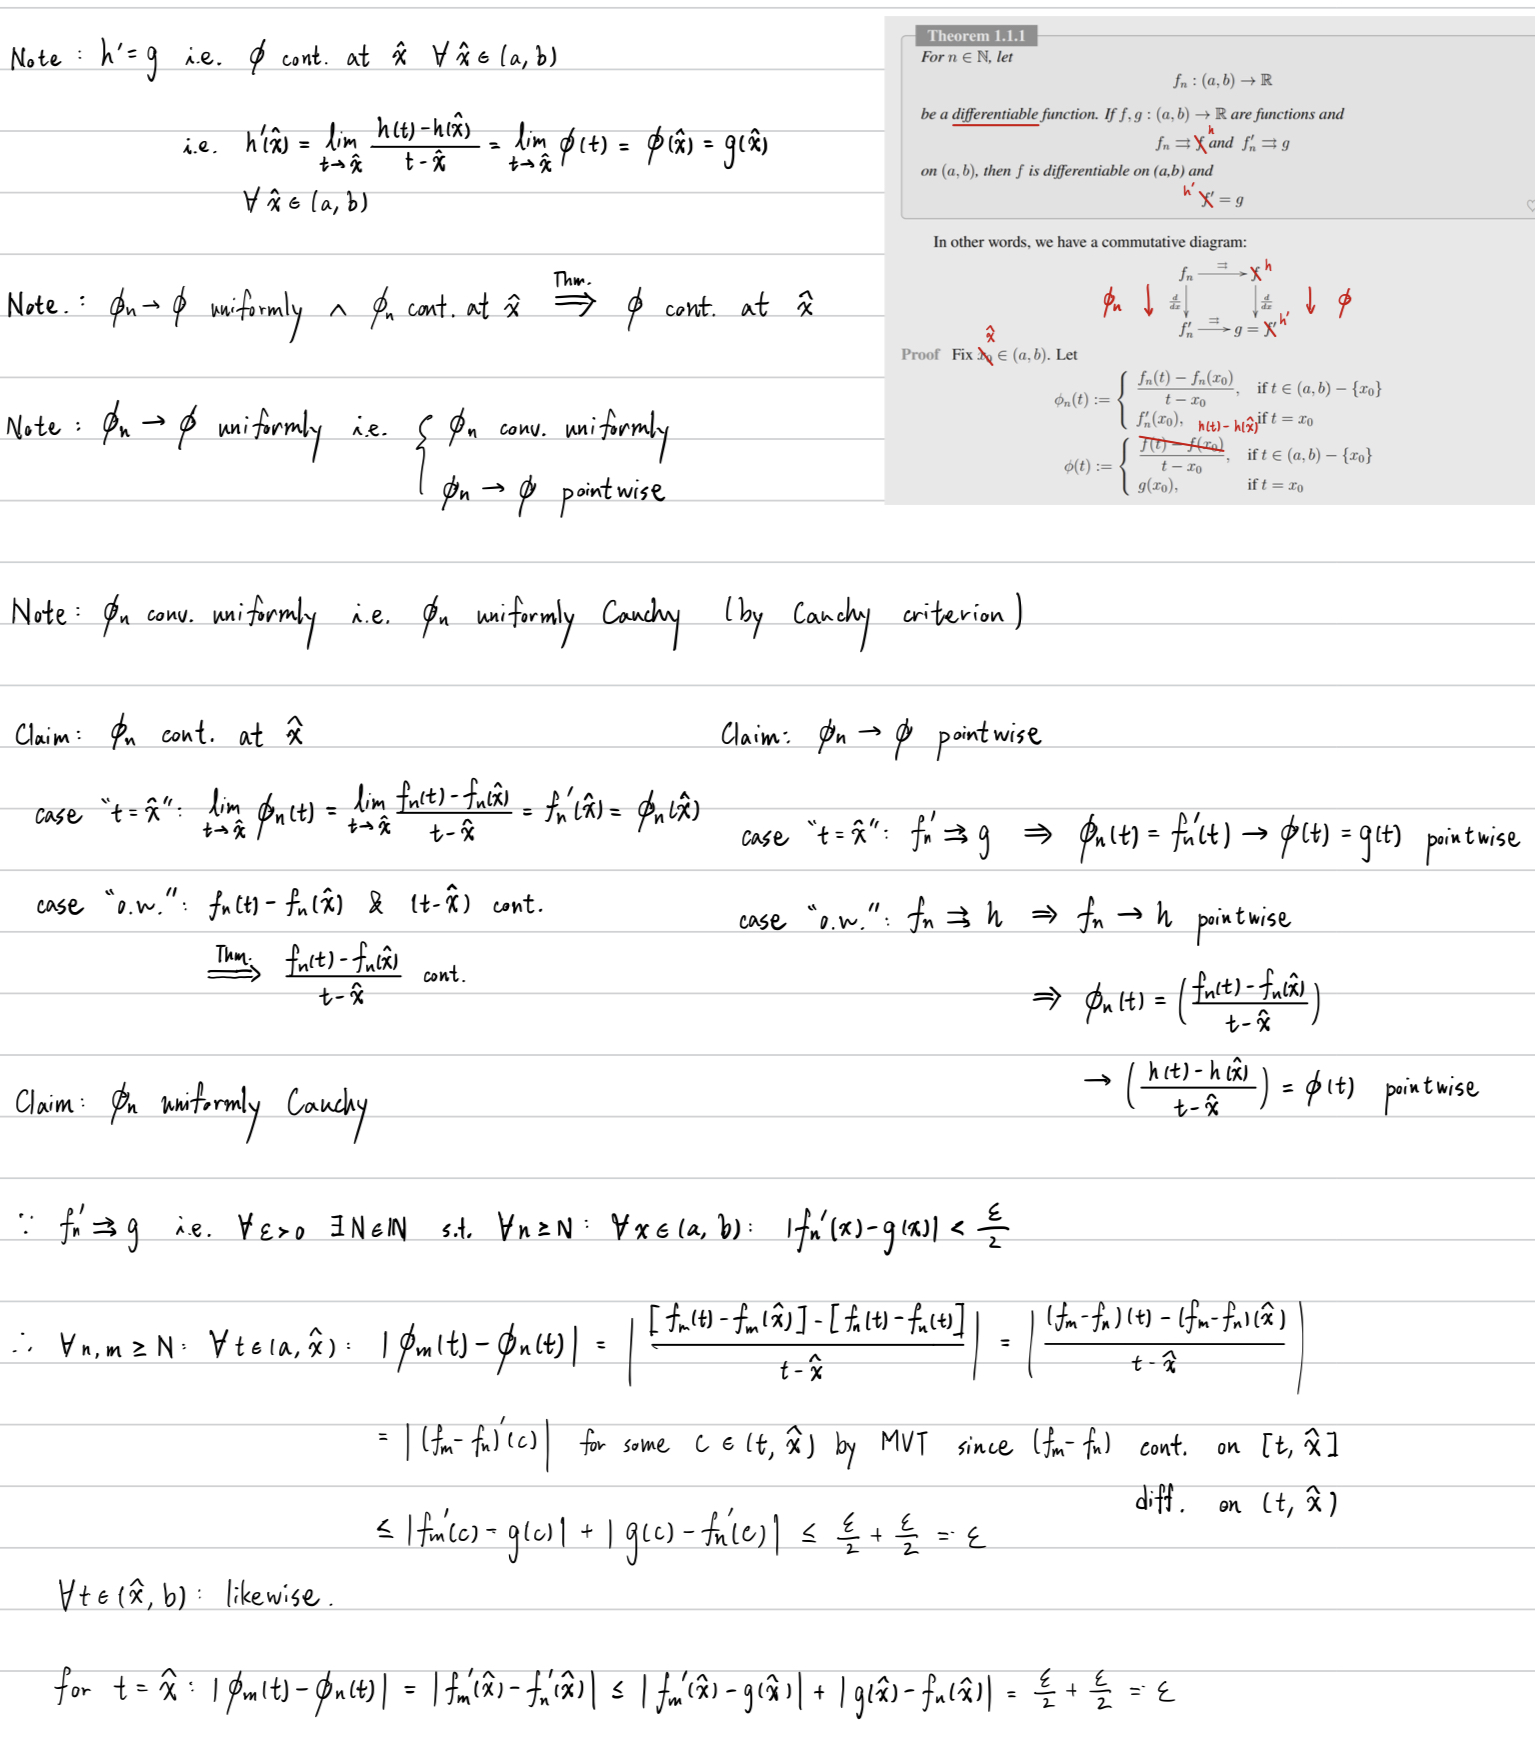 Note : h' = g i.e. ϕ cont. at x̂ ∀ x̂ ∈ (a, b)
i.e. h'(x̂) = lim_{t→x̂} (h(t) - h(x̂))/(t - x̂) = lim_{t→x̂} ϕ(t) = ϕ(x̂) = g(x̂)
∀ x̂ ∈ (a, b)
Note. : ϕn → ϕ uniformly ∧ ϕn cont. at x̂ ⟹ (Thm.) ϕ cont. at x̂
Note : ϕn → ϕ uniformly i.e. { ϕn conv. uniformly
ϕn → ϕ pointwise
Theorem 1.1.1
For n ∈ ℕ, let
fn : (a, b) → ℝ
be a differentiable function. If f, g : (a, b) → ℝ are functions and
fn ⇉ f h and f'n ⇉ g
on (a, b), then f is differentiable on (a,b) and
h' f' = g
♡
In other words, we have a commutative diagram:
fn ⇉ f h
ϕn ↓ d/dx ↓ d/dx ↓ ϕ
f'n ⇉ g = f' h'
x̂
Proof Fix x0 ∈ (a, b). Let
ϕn(t) := { (fn(t) − fn(x0))/(t − x0), if t ∈ (a, b) − {x0}
f'n(x0), if t = x0
h(t) - h(x̂)
ϕ(t) := { (f(t) − f(x0))/(t − x0), if t ∈ (a, b) − {x0}
g(x0), if t = x0
Note : ϕn conv. uniformly i.e. ϕn uniformly Cauchy (by Cauchy criterion)
Claim : ϕn cont. at x̂
case "t = x̂" : lim_{t→x̂} ϕn(t) = lim_{t→x̂} (fn(t) - fn(x̂))/(t - x̂) = fn'(x̂) = ϕn(x̂)
case "o.w." : fn(t) - fn(x̂) & (t - x̂) cont.
⟹ (Thm.) (fn(t) - fn(x̂))/(t - x̂) cont.
Claim : ϕn → ϕ pointwise
case "t = x̂" : fn' ⇉ g ⇒ ϕn(t) = fn'(t) → ϕ(t) = g(t) pointwise
case "o.w." : fn ⇉ h ⇒ fn → h pointwise
⇒ ϕn(t) = ((fn(t) - fn(x̂))/(t - x̂))
→ ((h(t) - h(x̂))/(t - x̂)) = ϕ(t) pointwise
Claim : ϕn uniformly Cauchy
∵ fn' ⇉ g i.e. ∀ ε > 0 ∃ N ∈ ℕ s.t. ∀ n ≥ N : ∀ x ∈ (a, b) : |fn'(x) - g(x)| < ε/2
∴ ∀ n, m ≥ N : ∀ t ∈ (a, x̂) : |ϕm(t) - ϕn(t)| = |([fm(t) - fm(x̂)] - [fn(t) - fn(t)])/(t - x̂)| = |((fm - fn)(t) - (fm - fn)(x̂))/(t - x̂)|
= |(fm - fn)'(c)| for some c ∈ (t, x̂) by MVT since (fm - fn) cont. on [t, x̂]
diff. on (t, x̂)
≤ |fm'(c) - g(c)| + |g(c) - fn'(c)| ≤ ε/2 + ε/2 = ε
∀ t ∈ (x̂, b) : likewise.
for t = x̂ : |ϕm(t) - ϕn(t)| = |fm'(x̂) - fn'(x̂)| ≤ |fm'(x̂) - g(x̂)| + |g(x̂) - fn(x̂)| = ε/2 + ε/2 = ε